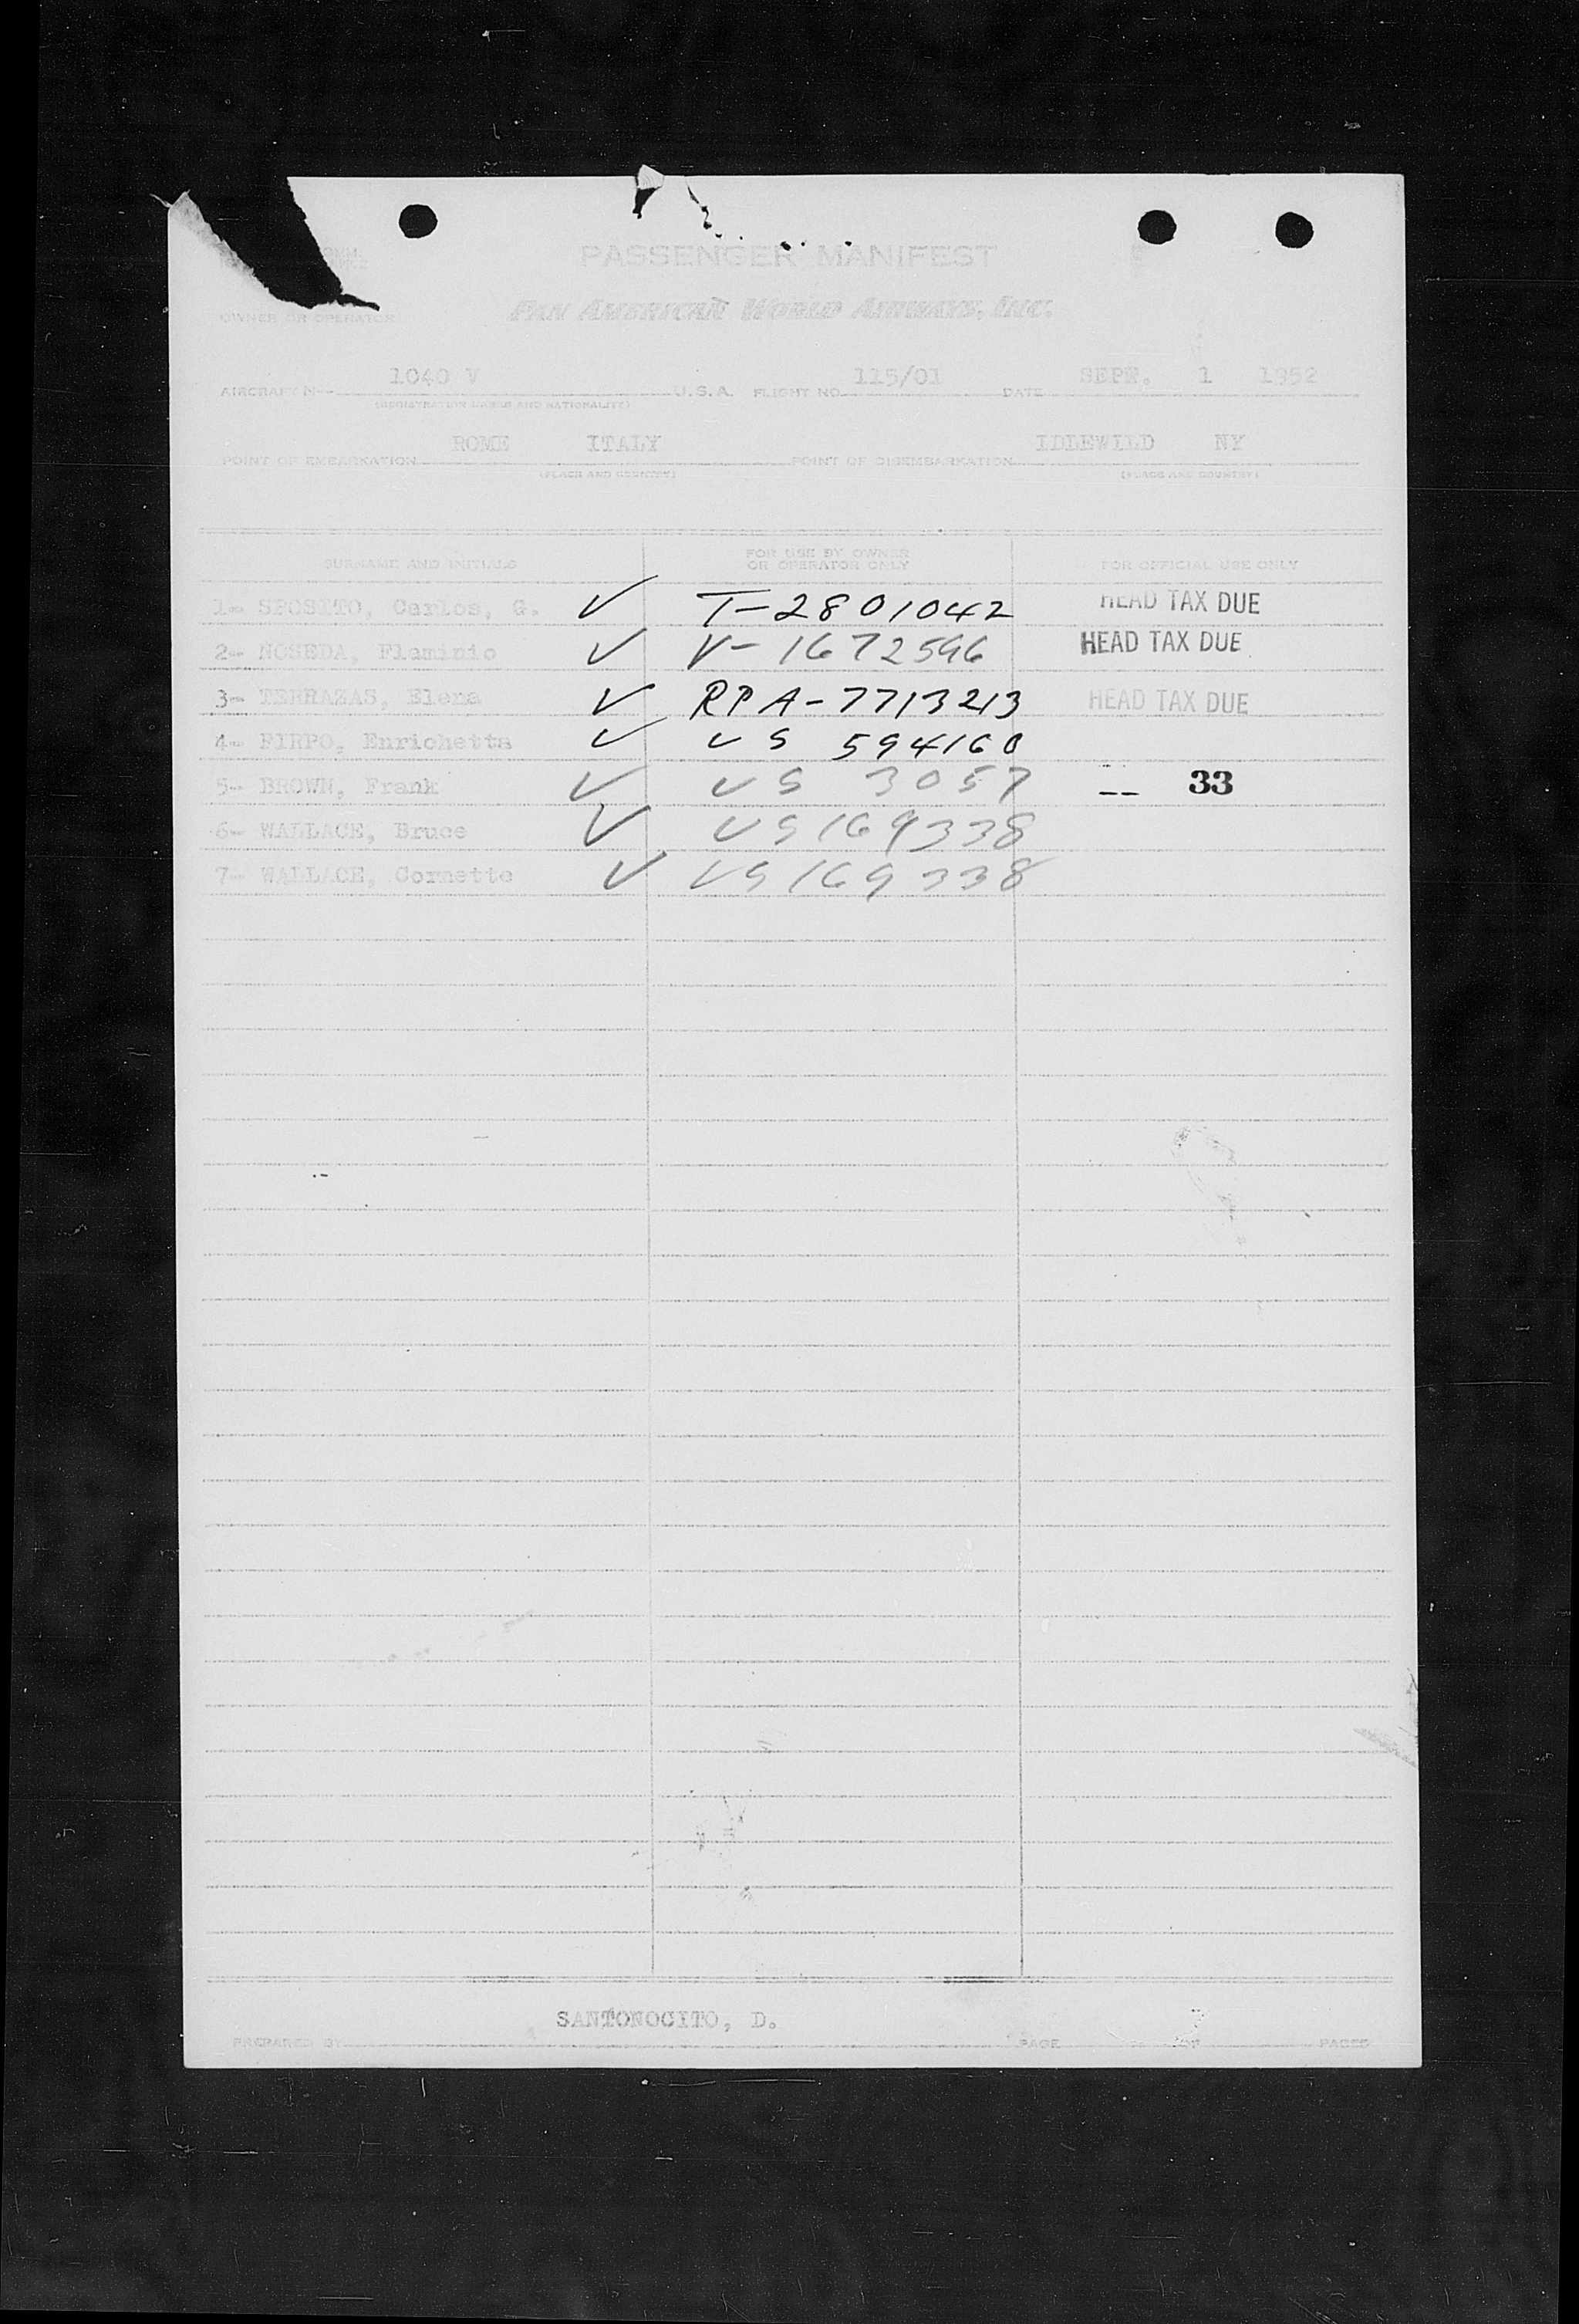 PASSENGER MANIFEST
PAN AMERICAN WORLD AIRWAYS, INC.
OWNER OR OPERATOR
AIRCRAFT N-- 1040 V U.S.A. FLIGHT NO. 115/01 DATE SEPT. 1 1952
(REGISTRATION MARKS AND NATIONALITY)
POINT OF EMBARKATION ROME ITALY POINT OF DISEMBARKATION IDLEWILD NY
(PLACE AND COUNTRY) (PLACE AND COUNTRY)
SURNAME AND INITIALS FOR USE BY OWNER OR OPERATOR ONLY FOR OFFICIAL USE ONLY
1- SPOSITO, Carlos, G. ✓ T-2801042 HEAD TAX DUE
2- NOSEDA, Flaminio ✓ V-1672596 HEAD TAX DUE
3- TERRAZAS, Elena ✓ RPA-7713213 HEAD TAX DUE
4- FIRPO, Enrichetta ✓ US 594160
5- BROWN, Frank ✓ US 3057 -- 33
6- WALLACE, Bruce ✓ US 169338
7- WALLACE, Cornette ✓ US 169338
SANTONOCITO, D.
PREPARED BY PAGE OF PAGES